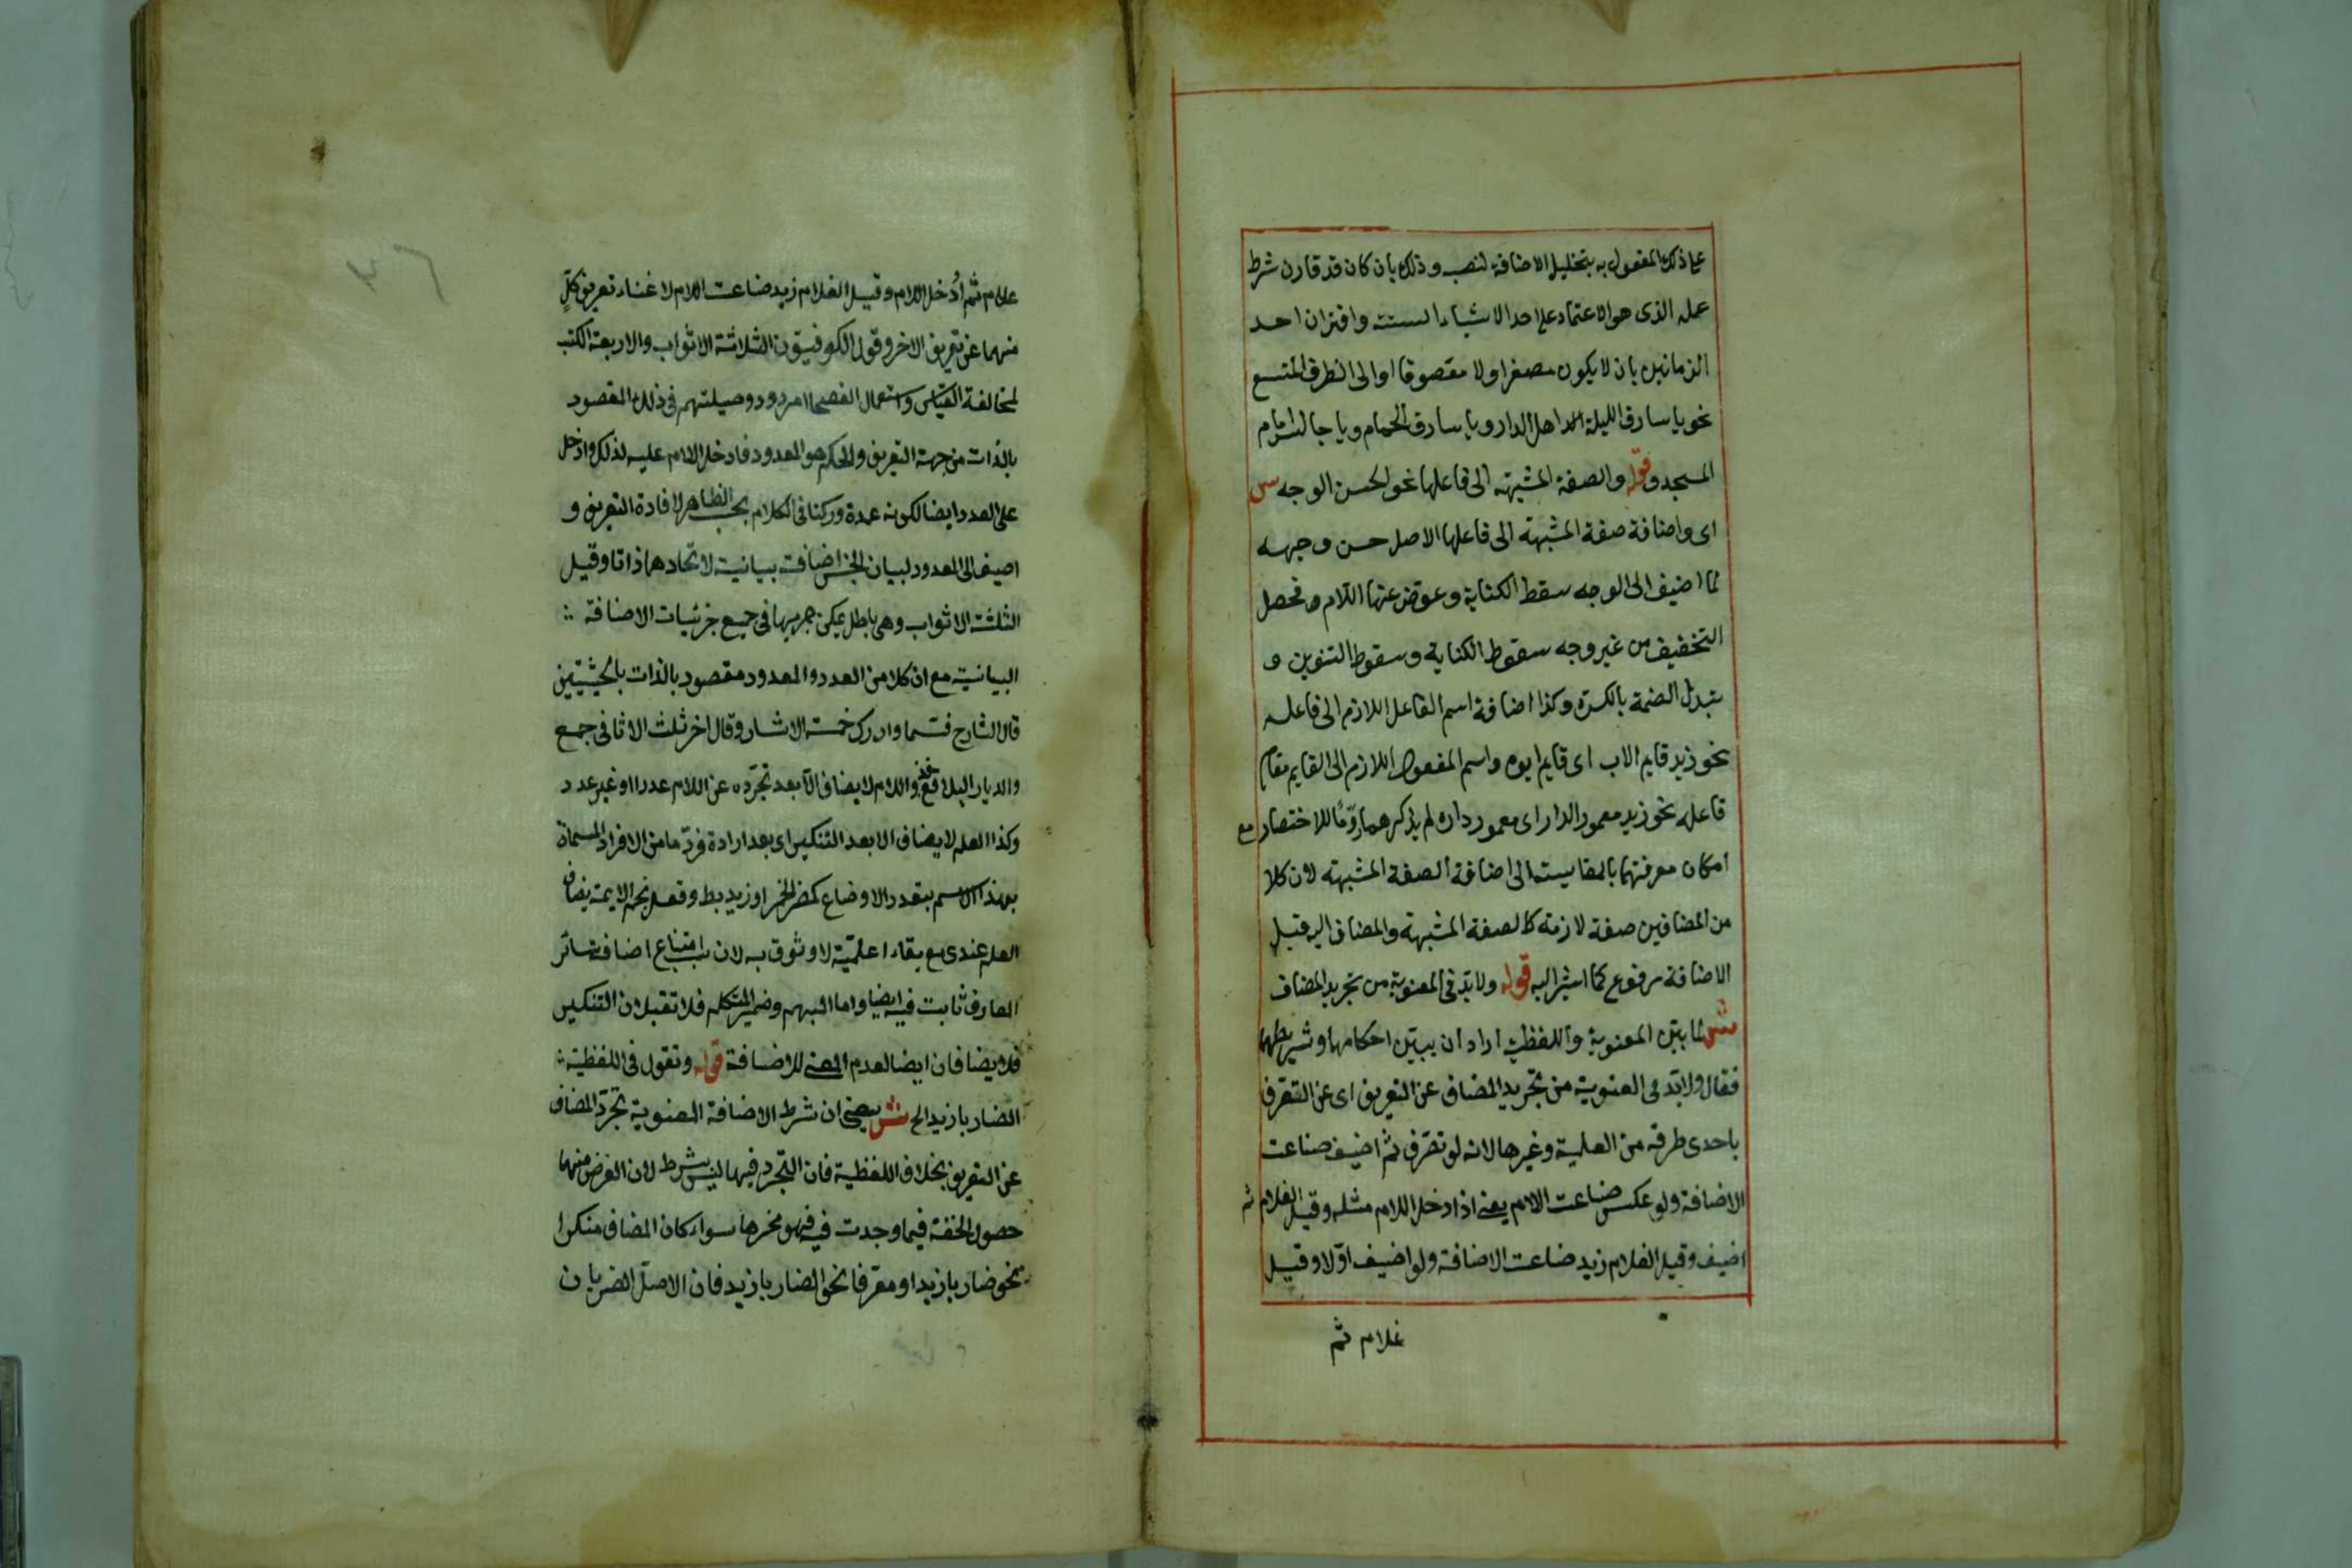 على ذلك المفعول به بتخليل الاضافة لنصب وذلك بان كان قد قارن شرط
عمله الذى هو الاعتماد على احد الاشياء الستة واقتران احد
الزمانين بان لا يكون مصغرا ولا مقصوفا او الى الظرف المتسع
نحو يا سارق الليلة اهل الدار ويا سارق الحمام ويا جالس امام
المسجد وقوله والصفة المشبهة الى فاعلها نحو الحسن الوجه س
اى واضافة صفة المشبهة الى فاعلها الاصل حسن وجهه
لما اضيف الى الوجه سقط الكناية وعوض عنها اللام وفحصل
التخفيف من غير وجه سقوط الكناية وسقوط التنوين و
بتبدل الضمة بالكسرة وكذا اضافة اسم الفاعل اللازم الى فاعله
نحو زيد قايم الاب اى قايم ابوه واسم المفعول اللازم الى القايم مقام
فاعله نحو زيد معمور الدار اى معمور داره لم يذكرهما روما للاختصار مع
امكان معرفتهما بالمقايسة الى اضافة الصفة المشبهة لان كلا
من المضافين صفة لازمة كالصفة المشبهة والمضاف اليه قبل
الاضافة مرفوع كما اشير اليه قوله ولا بد فى المعنوية من تجريد المضاف
ش لما بين المعنوية واللفظية اراد ان يبين احكامهما وشرايطهما
فقال ولا بد فى المعنوية من تجريد المضاف عن التعريف اى عن التعرف
باحدى طرقه من العلمية وغيرها لانه لو تعرف ثم اضيف ضاعت
الاضافة ولو عكس ضاعت اللام يعنى اذا دخل اللام مثله وقيل الغلام ثم
اضيف وقيل الغلام زيد ضاعت الاضافة ولو اضيف اولا وقيل
غلام ثم
غلام ثم أدخل اللام وقيل الغلام زيد ضاعت اللام لاغناء تعريف كل
منهما عن تعريف الاخر وقول الكوفيون الثلاثة الاثواب والاربعة الكتب
لمخالفة القياس واستعمال الفصحاء مردود وحيلتهم فى ذلك المقصود
بالذات من جهة التعريف والحكم هو المعدود فادخل اللام عليه لذلك وادخل
على العدد ايضا لكونه عمدة وركنا فى الكلام بحسب الظاهر لافادة التعريف و
اضيف الى المعدود لبيان الجنس اضافة بيانية لاتحادهما ذاتا وقيل
الثلثة الاثواب وهى باطل يمكن جريها فى جميع جزئيات الاضافة
البيانية مع ان كلا من العدد والمعدود مقصود بالذات بالحيثيتين
قال الشارح فسما وادرك خمسة الاشبار وقال اخر ثلث الاثافى جمع
والديار البلاقع واللام لا يضاف الا بعد تجرده عن اللام عددا او غير عدد
وكذا العلم لا يضاف الا بعد التنكير اى بعد ارادة فرد ما من الافراد المسماة
بهذا الاسم بتعدد الاوضاع كمضر الخمر او زيد بط وقول نجم الايمة يضاف
العلم عندى مع بقاء اعلمية لا وثوق به لان سبب امتناع اضافة سائر
المعارف ثابت فيه ايضا واما المبهم وضمير المتكلم فلا تقبلان التنكير
فلا يضافان ايضا لعدم المعنى للاضافة قوله ونقول فى اللفظية
الضاربا زيد الخ ش يعنى ان شرط الاضافة المعنوية تجرد المضاف
عن التعريف بخلاف اللفظية فان التجرد فيها ليس بشرط لان الغرض منهما
حصول الخفة فيما وجدت فيه فهو مخرها سواء كان المضاف منكرا
نحو ضاربا زيد او معرفا نحو الضاربا زيد فان الاصل الضربان